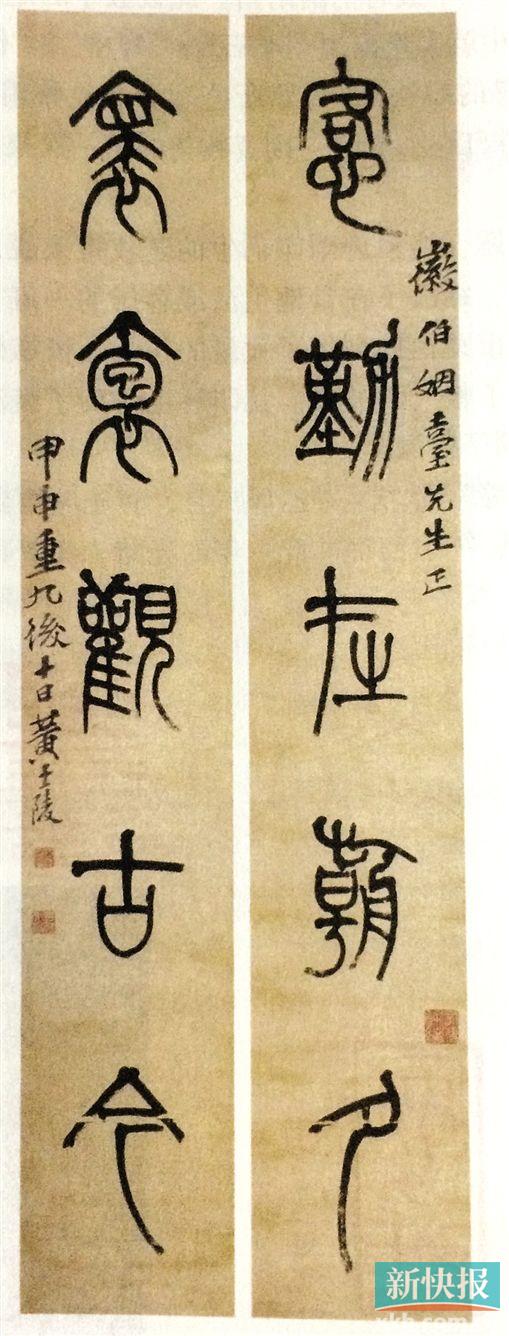 愙勤在朝夕
徽伯姻臺先生正
褱袌觀古今
甲申重九後十日黃士陵
新快报